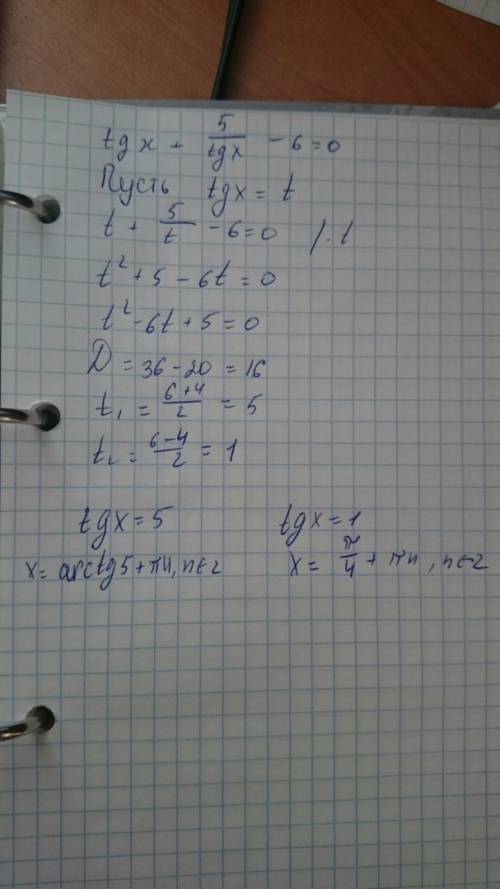 tg x + 5/tgx - 6 = 0
Пусть tgx = t
t + 5/t - 6 = 0 /·t
t² + 5 - 6t = 0
t² - 6t + 5 = 0
D = 36 - 20 = 16
t₁ = (6+4)/2 = 5
t₂ = (6-4)/2 = 1
tgx = 5 tgx = 1
x = arctg5 + πn, n∈Z x = π/4 + πn, n∈Z